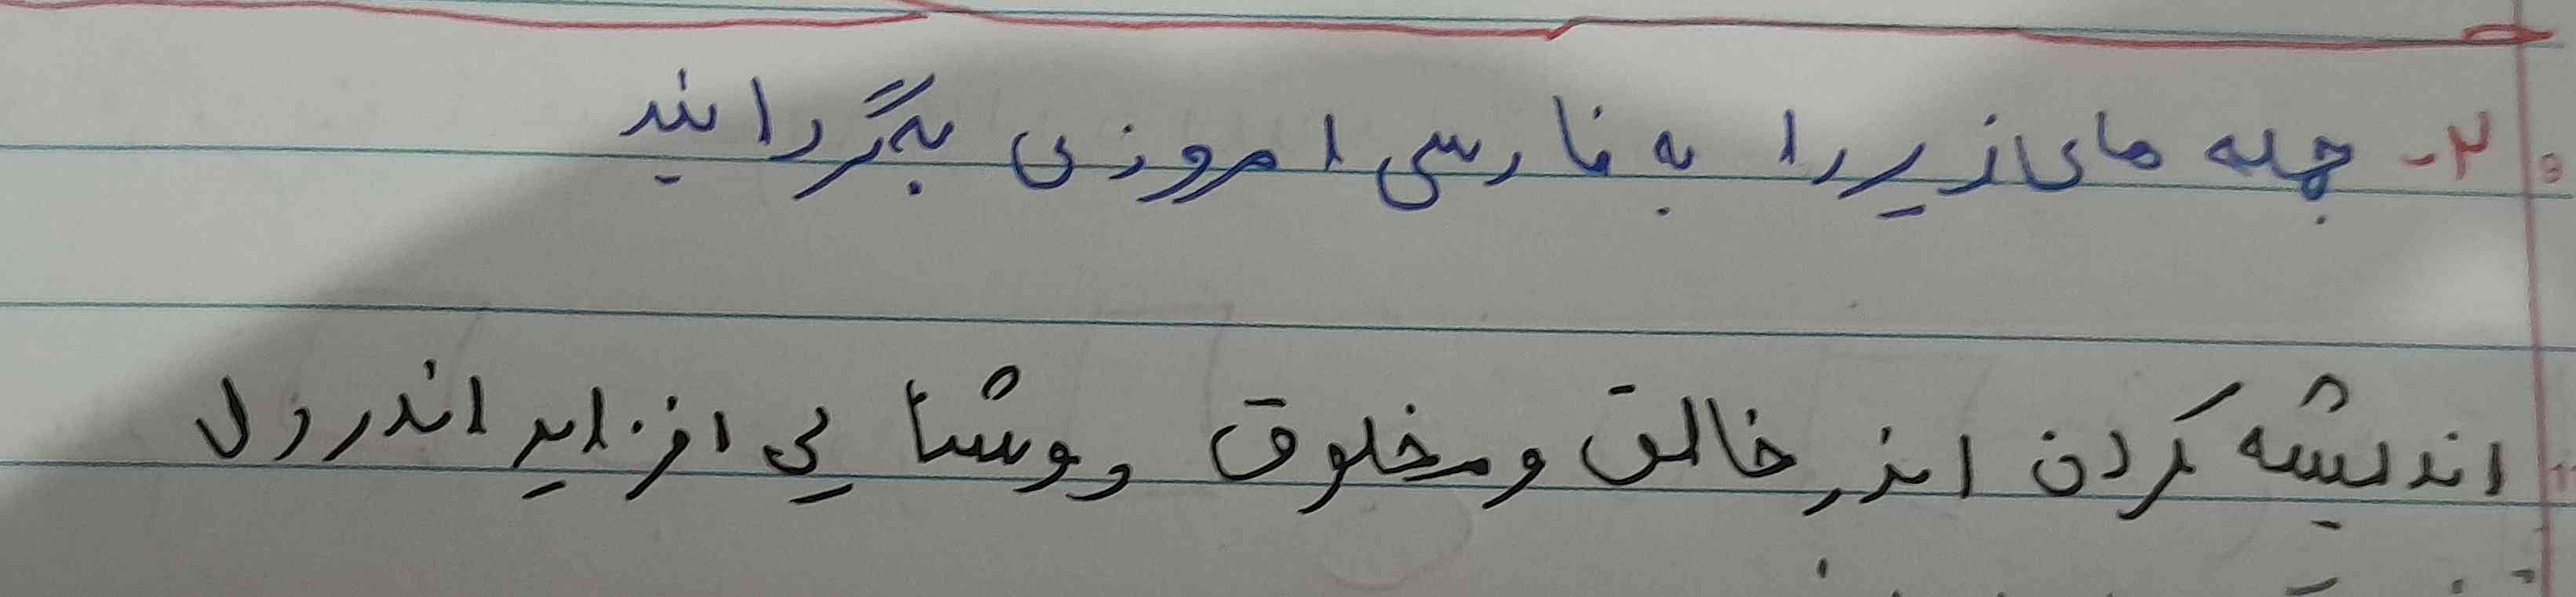 ۲- جمله های زیر را به فارسی امروزی بگردانید
اندیشه کردن اندر خالق و مخلوق روشنایی افزاید اندر دل